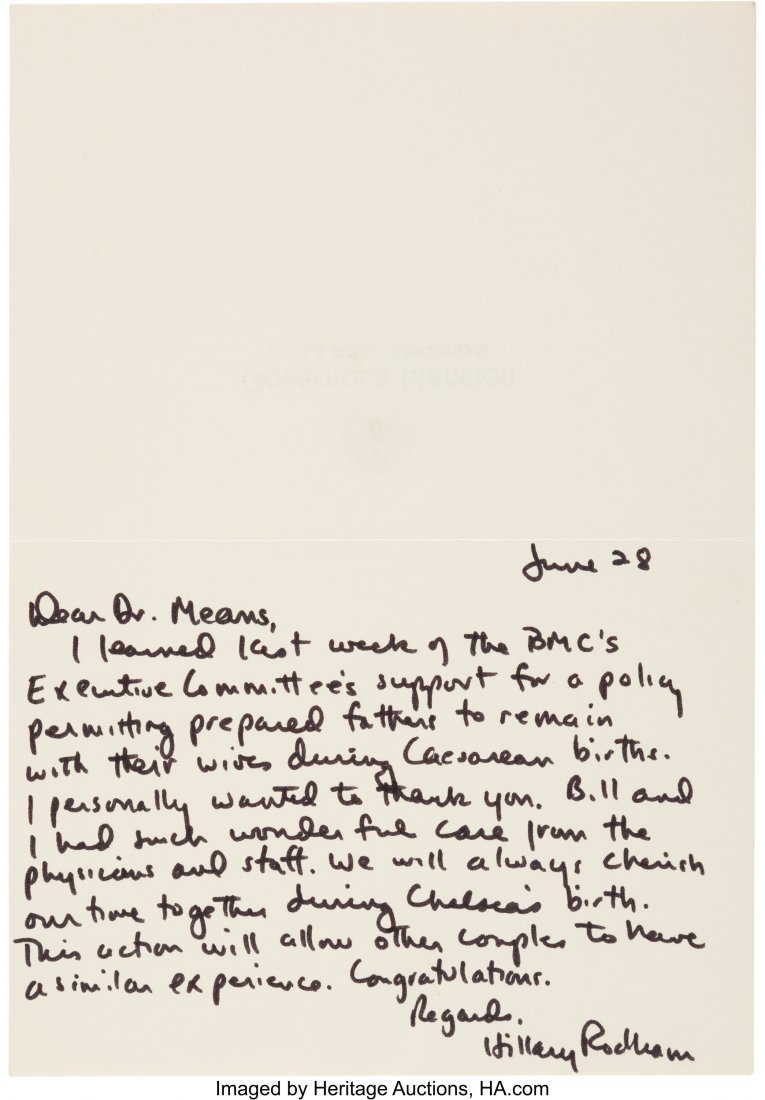 June 28
Dear Dr. Means,
I learned last week of the BMC's
Executive Committee's support for a policy
permitting prepared fathers to remain
with their wives during Caesarean births.
I personally wanted to thank you. Bill and
I had such wonderful care from the
physicians and staff. We will always cherish
our time together during Chelsea's birth.
This action will allow other couples to have
a similar experience. Congratulations.
Regards,
Hillary Rodham
Imaged by Heritage Auctions, HA.com